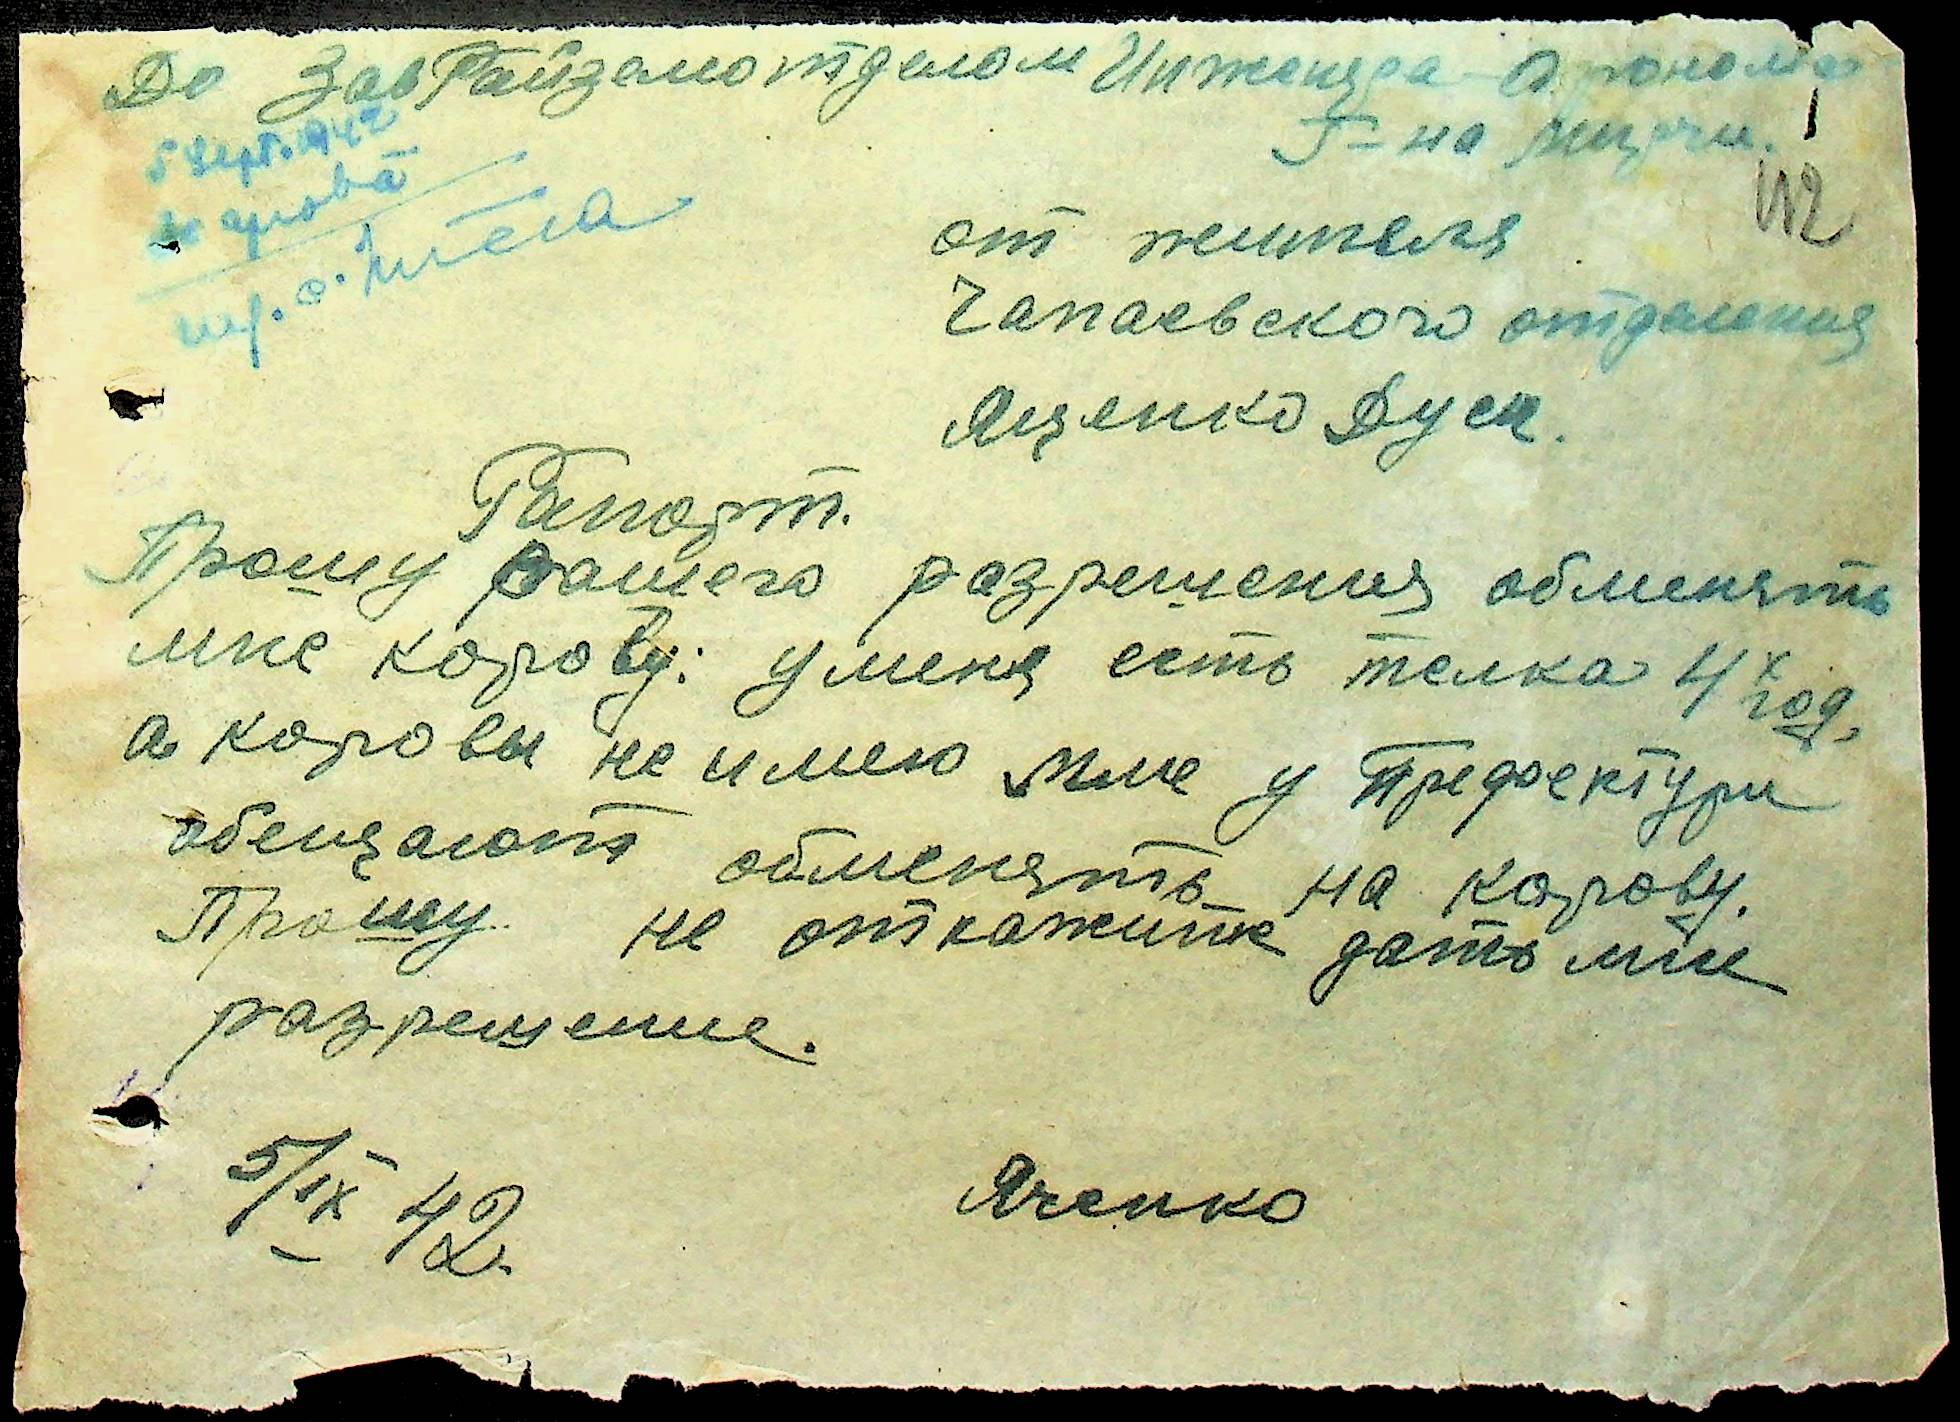 До ЗавРайземотделом Инженера-Агронома
Г-на
5 Sept. 1942
112
от жителя
Чапаевского отделения
Ященко Дуси.
Рапорт.
Прошу вашего разрешения обменять
мне корову: у меня есть телка 4х год.
а коровы не имею мне у Префектури
обещают обменять на корову.
Прошу не откажите дать мне
разрешение.
5/IX 42.
Яченко